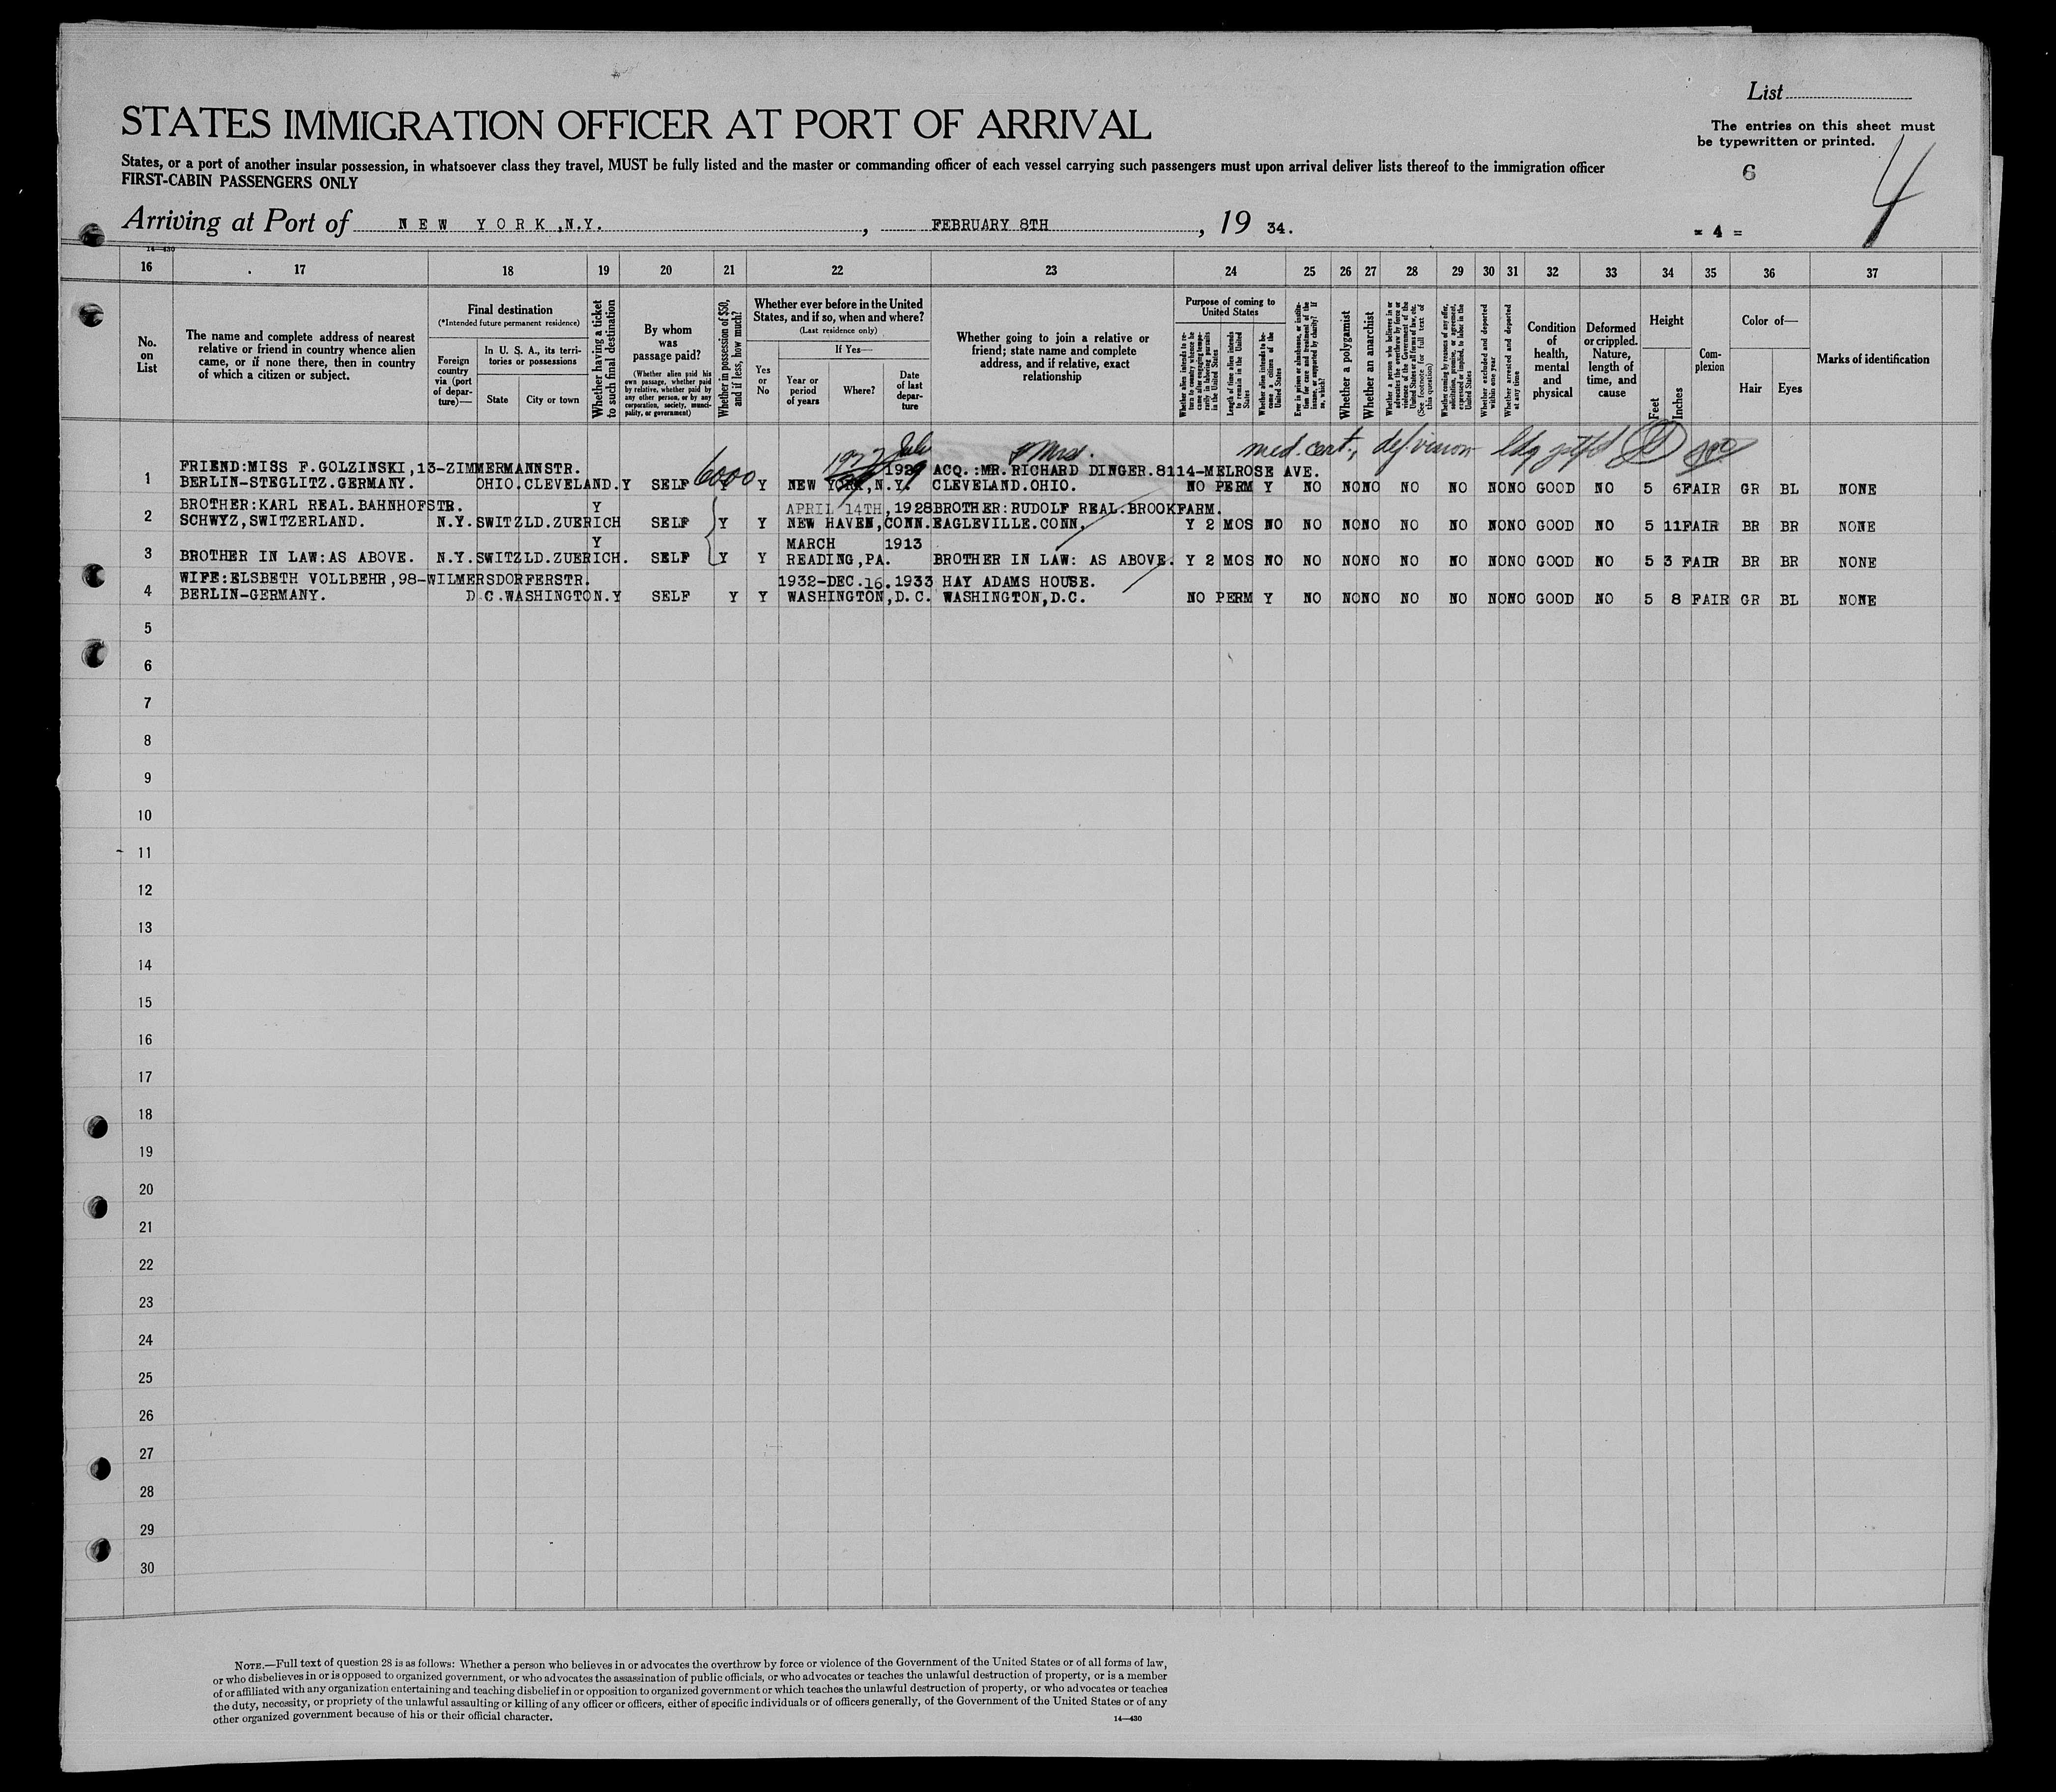 List
STATES IMMIGRATION OFFICER AT PORT OF ARRIVAL
The entries on this sheet must
be typewritten or printed.
States, or a port of another insular possession, in whatsoever class they travel, MUST be fully listed and the master or commanding officer of each vessel carrying such passengers must upon arrival deliver lists thereof to the immigration officer
FIRST-CABIN PASSENGERS ONLY
6
4
Arriving at Port of NEW YORK,N.Y. , FEBRUARY 8TH , 19 34.
= 4 =
14—430
16 17 18 19 20 21 22 23 24 25 26 27 28 29 30 31 32 33 34 35 36 37
No. on List
The name and complete address of nearest relative or friend in country whence alien came, or if none there, then in country of which a citizen or subject.
Final destination
(*Intended future permanent residence)
Foreign country via (port of departure)—
In U. S. A., its territories or possessions
State
City or town
Whether having a ticket to such final destination
By whom was passage paid?
(Whether alien paid his own passage, whether paid by relative, whether paid by any other person, or by any corporation, society, municipality, or government)
Whether in possession of $50, and if less, how much?
Whether ever before in the United States, and if so, when and where?
(Last residence only)
If Yes—
Yes or No
Year or period of years
Where?
Date of last departure
Whether going to join a relative or friend; state name and complete address, and if relative, exact relationship
Purpose of coming to United States
Whether alien intends to return to country whence he came after engaging temporarily in laboring pursuits in the United States
Length of time alien intends to remain in the United States
Whether alien intends to become a citizen of the United States
Ever in prison or almshouse, or institution for care and treatment of the insane, or supported by charity? If so, which?
Whether a polygamist
Whether an anarchist
Whether a person who believes in or advocates the overthrow by force or violence of the Government of the United States or all forms of law, etc. (See footnote for full text of this question)
Whether coming by reason of any offer, solicitation, promise, or agreement, expressed or implied, to labor in the United States
Whether excluded and deported within one year
Whether arrested and deported at any time
Condition of health, mental and physical
Deformed or crippled. Nature, length of time, and cause
Height
Feet
Inches
Complexion
Color of—
Hair
Eyes
Marks of identification
July & Mrs. med. cert., def vision
1 FRIEND:MISS F.GOLZINSKI,13-ZIMMERMANNSTR. 6000 1929 ACQ.:MR.RICHARD DINGER.8114-MELROSE AVE.
BERLIN-STEGLITZ.GERMANY. OHIO.CLEVELAND.Y SELF Y Y NEW YORK,N.Y. CLEVELAND.OHIO. NO PERM Y NO NONO NO NO NONO GOOD NO 5 6 FAIR GR BL NONE
2 BROTHER:KARL REAL.BAHNHOFSTR. Y APRIL 14TH,1928 BROTHER:RUDOLF REAL.BROOKFARM.
SCHWYZ,SWITZERLAND. N.Y.SWITZLD.ZUERICH SELF Y Y NEW HAVEN,CONN. EAGLEVILLE.CONN. Y 2 MOS NO NO NONO NO NO NONO GOOD NO 5 11 FAIR BR BR NONE
Y MARCH 1913
3 BROTHER IN LAW:AS ABOVE. N.Y.SWITZLD.ZUERICH. SELF Y Y READING,PA. BROTHER IN LAW: AS ABOVE. Y 2 MOS NO NO NONO NO NO NONO GOOD NO 5 3 FAIR BR BR NONE
4 WIFE:ELSBETH VOLLBEHR,98-WILMERSDORFERSTR. 1932-DEC.16.1933 HAY ADAMS HOUSE.
BERLIN-GERMANY. D.C.WASHINGTON.Y SELF Y Y WASHINGTON,D.C. WASHINGTON,D.C. NO PERM Y NO NONO NO NO NONO GOOD NO 5 8 FAIR GR BL NONE
5
6
7
8
9
10
11
12
13
14
15
16
17
18
19
20
21
22
23
24
25
26
27
28
29
30
NOTE.—Full text of question 28 is as follows: Whether a person who believes in or advocates the overthrow by force or violence of the Government of the United States or of all forms of law,
or who disbelieves in or is opposed to organized government, or who advocates the assassination of public officials, or who advocates or teaches the unlawful destruction of property, or is a member
of or affiliated with any organization entertaining and teaching disbelief in or opposition to organized government or which teaches the unlawful destruction of property, or who advocates or teaches
the duty, necessity, or propriety of the unlawful assaulting or killing of any officer or officers, either of specific individuals or of officers generally, of the Government of the United States or of any
other organized government because of his or their official character.
14—430